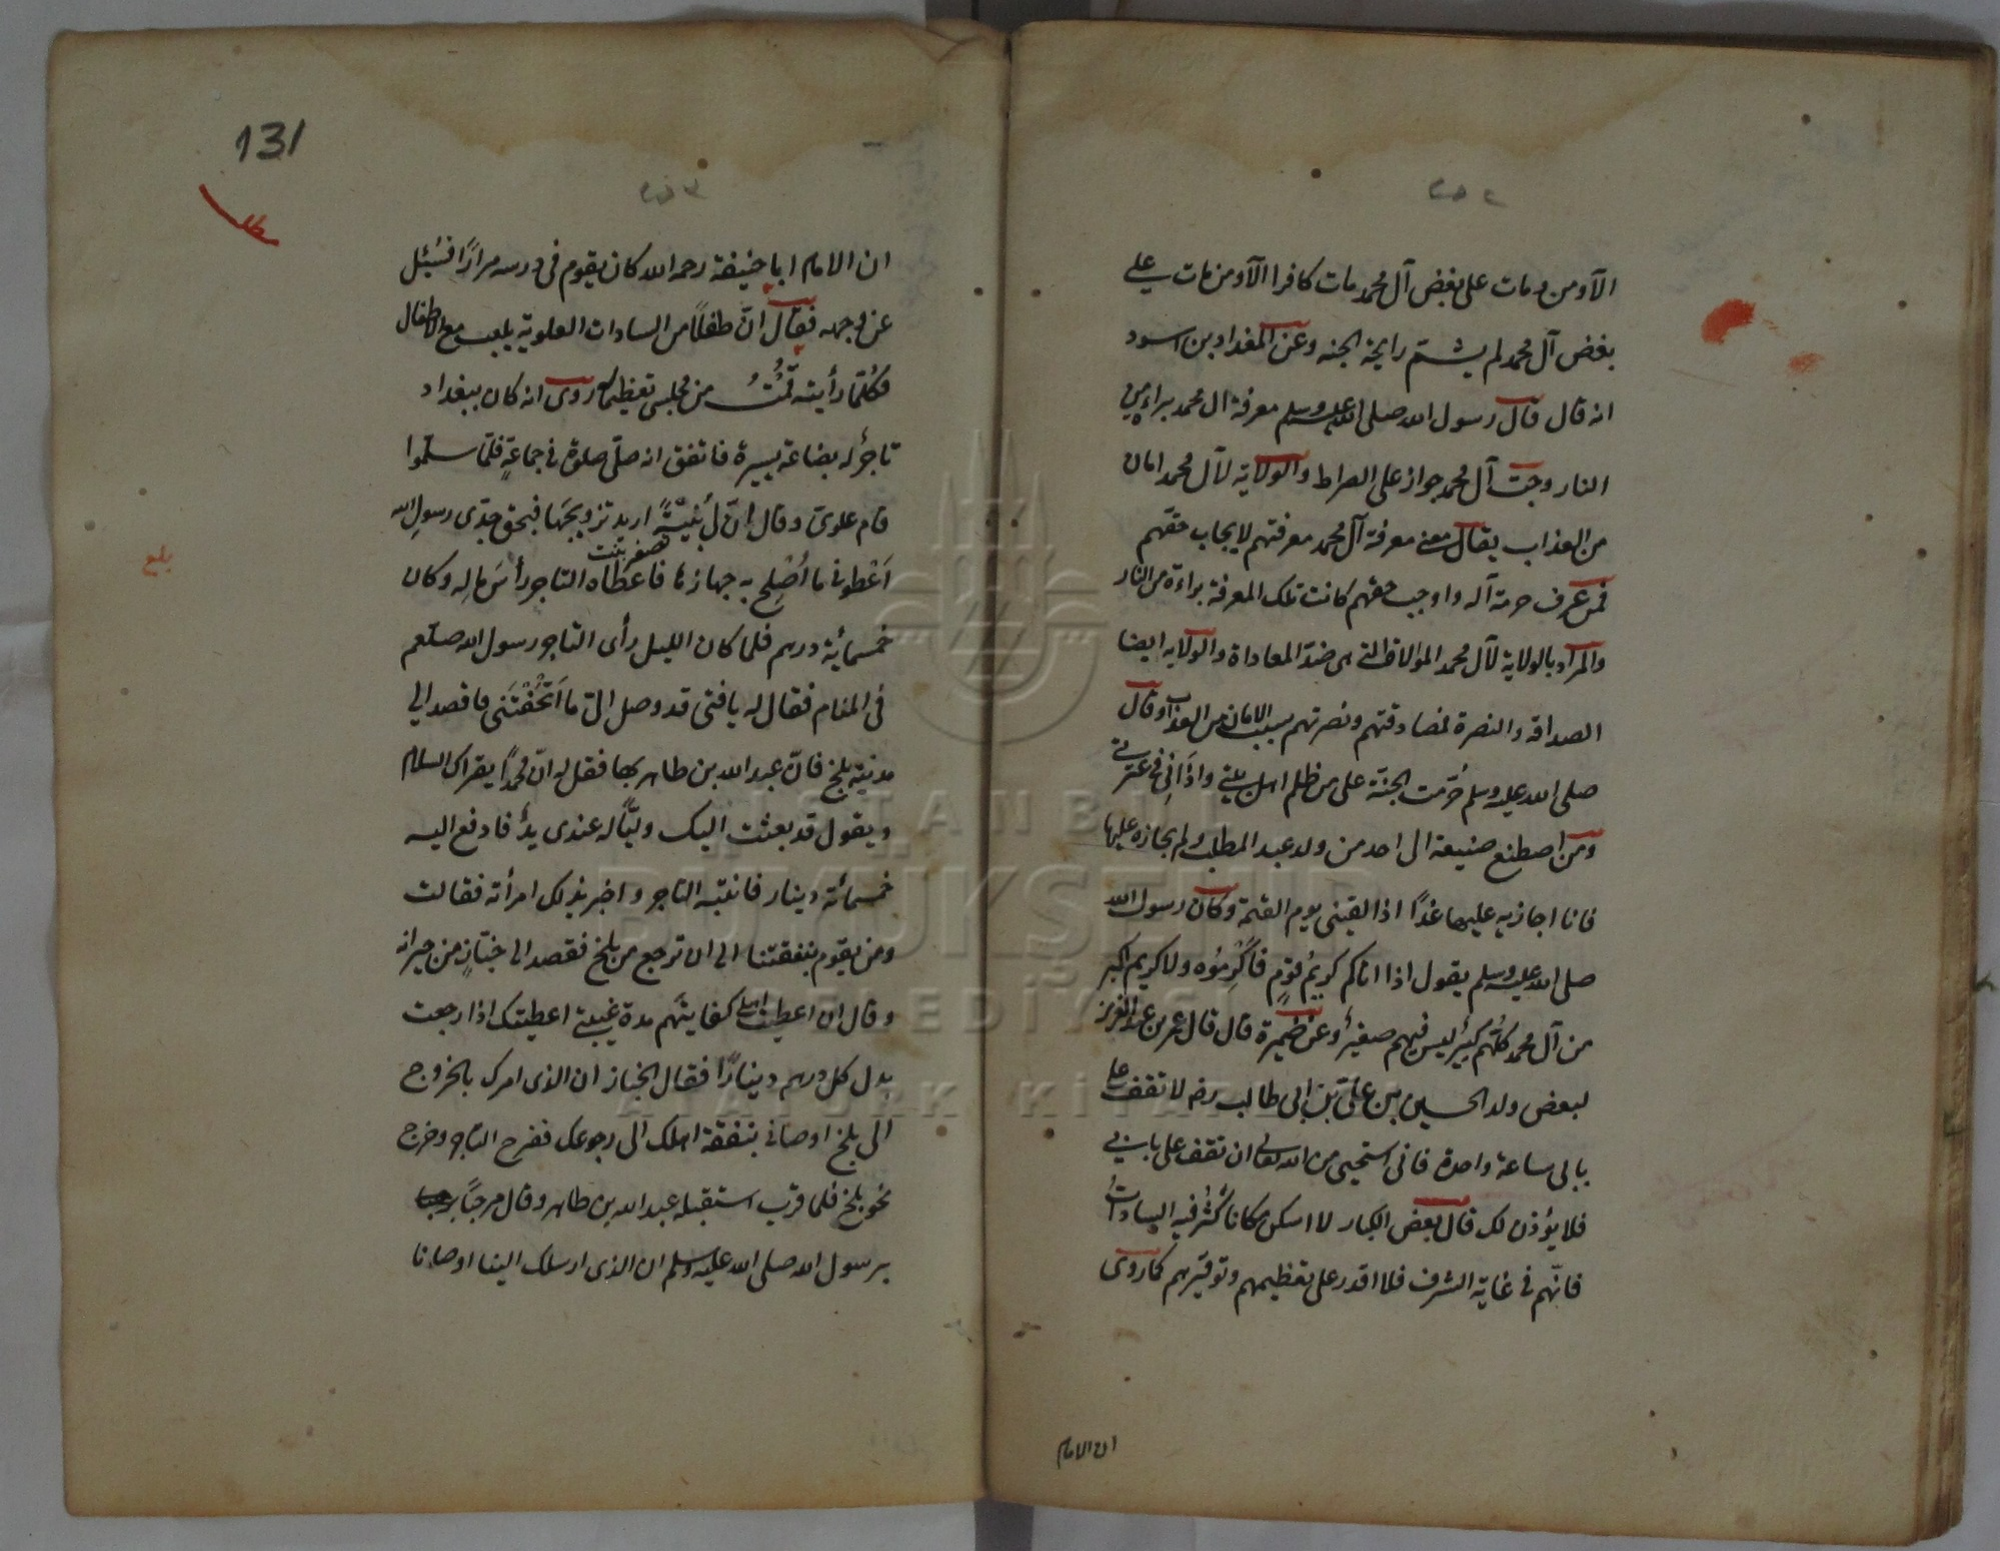 الآ ومن مات على بغض آل محمد مات كافرا الآ ومن مات على
بغض آل محمد لم يشتم رايحة الجنه وعن المقداد بن اسود
انه قال قال رسول الله صلى الله عليه وسلم معرفة ال محمد براءة من
النار وحب آل محمد جواز على الصراط والولاية لآل محمد امان
من العذاب يقال معنى معرفة آل محمد معرفتهم لايجاب حقهم
فمن عرف حرمة آله واوجب حقهم كانت تلك المعرفة براءة من النار
والمراد بالولاية لآل محمد الموالاة التى هى ضد المعاداة والولايه ايضا
الصداقه والنصرة فمصادقتهم ونصرتهم سبب الامان من العذاب وقال
صلى الله عليه وسلم حُرّمت الجنة على من ظلم اهل بيتى واذانى فى عترتى
ومن اصطنع صنيعة الى احد من ولد عبد المطلب ولم يجازه عليها
فانا اجازيه عليها غدًا اذا لقينى يوم القيمة وكان رسول الله
صلى الله عليه وسلم يقول اذا اتاكم كريمُ قومٍ فأكْرِمُوه ولا كريم اكبر
من آل محمد كلّهم كبير ليس فيهم صغير وعن ضميرة قال قال عمر بن عبد العزيز
لبعض ولد الحسين بن على بن ابى طالب رضه لا تقف على
بابى ساعة واحدة فانى استحيى من الله تعالى ان تقف على بابى
فلا يؤذن لك قال بعض الكبار لا اسكن مكانا كَثُرَ فيه السادات
فانّهم فى غاية الشرف فلا اقدر على تعظيمهم وتوقيرهم كما روى
ان الامام
131
ان الامام ابا حنيفة رحمه الله كان يقوم فى درسه مرارًا فسُئِل
عن وجهه فقال انّ طفلاً من السادات العلوية يلعب مع الاطفال
فكُلّما رأيته قُمْتُ من مجلسى تعظيما روى انه كان ببغداد
تاجر له بضاعة يسيرة فاتفق انه صلّى صلوة فى جماعةٍ فلمّا سلّموا
قام علوىّ وقال انّ لى بُنَيّةً اريد تزويجَها فبحق جدّى رسولِ الله
تصغير بنت
اَعْطونى ما اُصْلِح به جهازها فاعطاه التاجر رأسَ مالِه وكان
خمسمائة درهم فلما كان الليل رأى التاجر رسول الله صلعم
فى المنام فقال له يا فتى قد وصل الىّ ما اَتْحَفْتَنى فاقصد الى
مدينة بلخ فانّ عبد الله بن طاهر بها فقل له انّ محمدًا يقراك السلام
ويقول قد بعثت اليك وليًّا له عندى يدٌ فادفع اليه
خمسمائة دينار فانتبه التاجر واخبر بذلك امرأته فقالت
ومن يقوم بنفقتنا الى ان ترجع من بلخ فقصد الى خبّازٍ من جيرانه
وقال ان اعطيت اهلى كفايتَهم مدة غيبتى اعطيتك اذا رجعت
بدل كل درهم دينارًا فقال الخباز ان الذى امرك بالخروج
الى بلخ اوصانى بنفقة اهلك الى رجوعك ففرح التاجر وخرج
نحو بلخ فلما قرب استقبله عبد الله بن طاهر وقال مرحبًا
برسول الله صلى الله عليه وسلم ان الذى ارسلك الينا اوصانا
بلغ